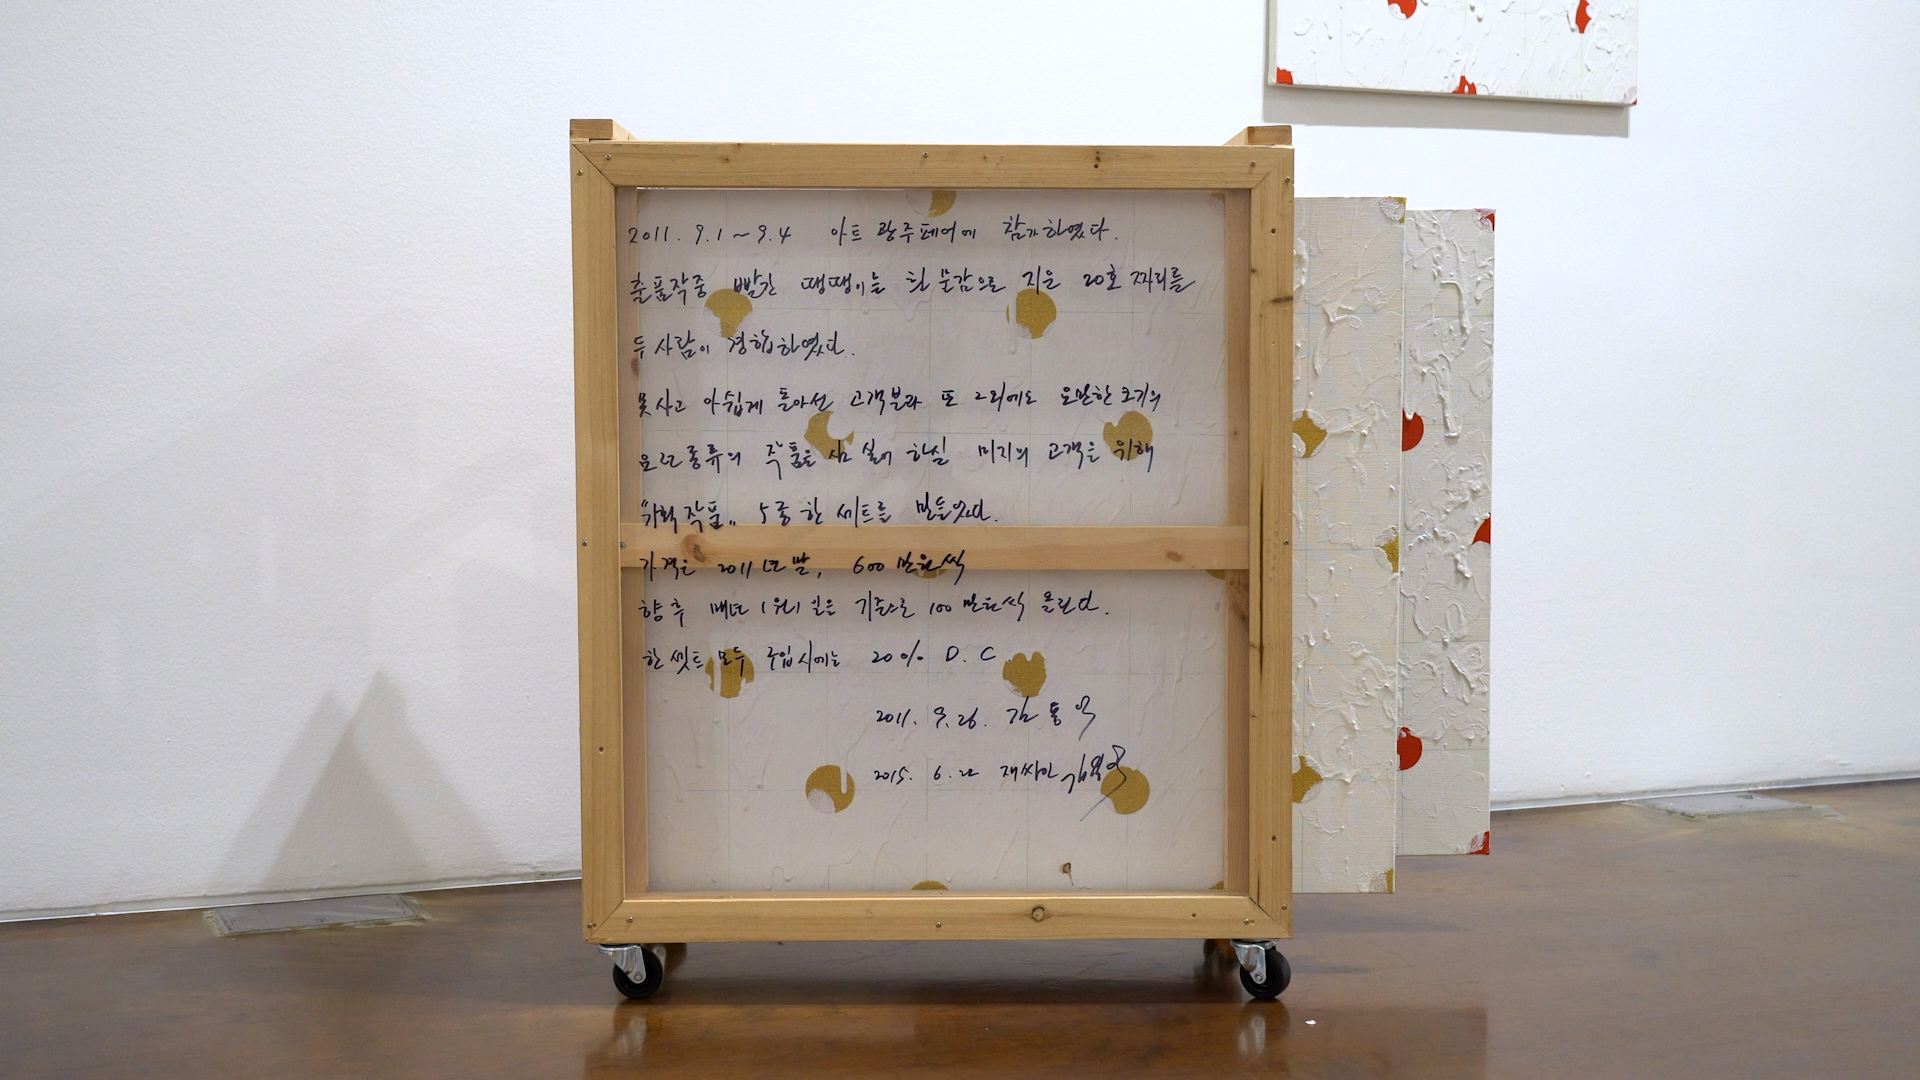 2011. 9.1 ~ 9.4 아트 광주 페어에 참가하였다.
출품작중 빨간 땡땡이를 흰 물감으로 지운 20호 짜리를
두 사람이 경합하였다.
못사고 아쉽게 돌아선 고객분과 또 그외에도 오만한 크기의
요런 종류의 작품을 삼 실어 하실 미지의 고객을 위해
"기획 작품" 5종 한 세트를 만들었다.
가격은 2011년 말, 600 만원씩
향후 매년 1월1일을 기준으로 100만원씩 올린다.
한 셋트 모두 구입시에는 20% D.C.
2011. 9.26. 김용익
2015. 6.22 재싸인 김용익